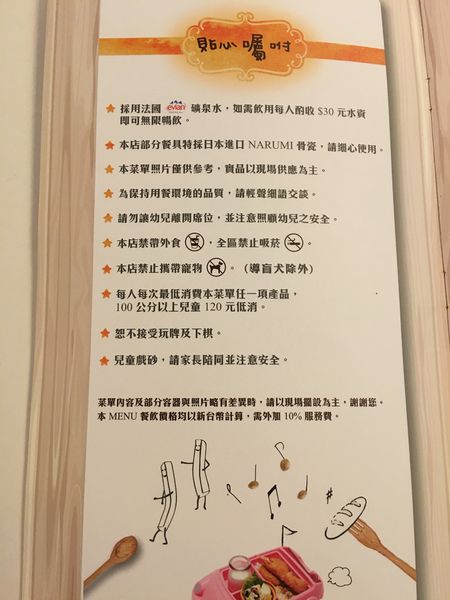 貼心囑咐
★ 採用法國 evian 礦泉水，如需飲用每人酌收 $30 元水資
即可無限暢飲。
★ 本店部分餐具特採日本進口 NARUMI 骨瓷，請細心使用。
★ 本菜單照片僅供參考，實品以現場供應為主。
★ 為保持用餐環境的品質，請輕聲細語交談。
★ 請勿讓幼兒離開席位，並注意照顧幼兒之安全。
★ 本店禁帶外食，全區禁止吸菸。
★ 本店禁止攜帶寵物。（導盲犬除外）
★ 每人每次最低消費本菜單任一項產品，
100 公分以上兒童 120 元低消。
★ 恕不接受玩牌及下棋。
★ 兒童戲砂，請家長陪同並注意安全。
菜單內容及部分容器與照片略有差異時，請以現場擺設為主，謝謝您。
本 MENU 餐飲價格均以新台幣計算，需外加 10% 服務費。